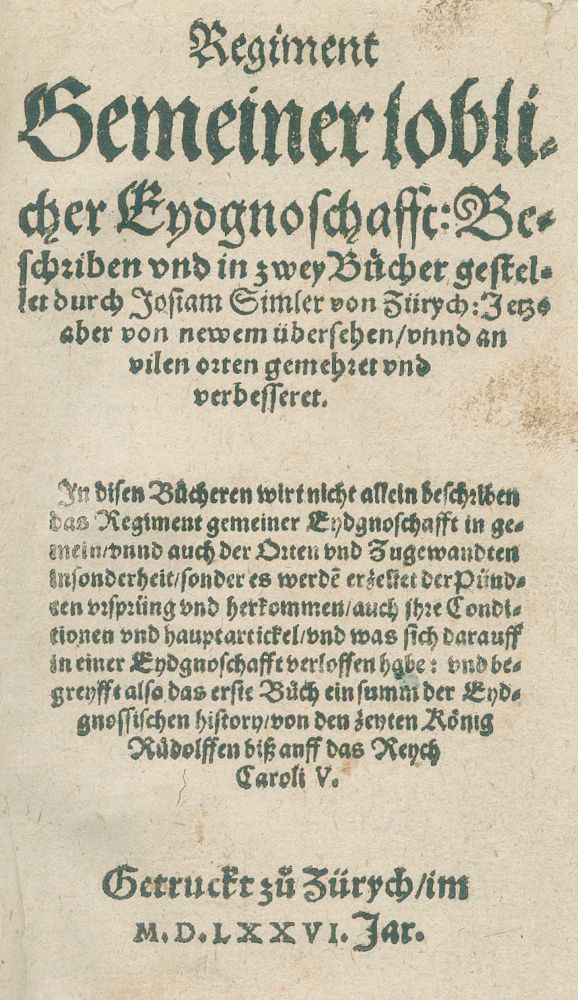 Regiment
Gemeiner lobli-
cher Eydgnoschafft: Be-
schriben vnd in zwey Bücher gestel-
let durch Josiam Simler von Zürych: Jetz
aber von newem übersehen/vnnd an
vilen orten gemehret vnd
verbesseret.
In disen Bücheren wirt nicht allein beschriben
das Regiment gemeiner Eydgnoschafft in ge-
mein/vnnd auch der Orten vnd Zugewandten
insonderheit/sonder es werdē erzellet der Pünd-
ten vrsprüng vnd herkommen/auch ihre Condi-
tionen vnd hauptartickel/vnd was sich darauff
in einer Eydgnoschafft verloffen habe: vnd be-
greyfft also das erste Bůch ein summ der Eyd-
gnossischen history/von den zeyten König
Růdolffen biß auff das Reych
Caroli V.
Getruckt zů Zürych/im
M. D. LXXVI. Jar.